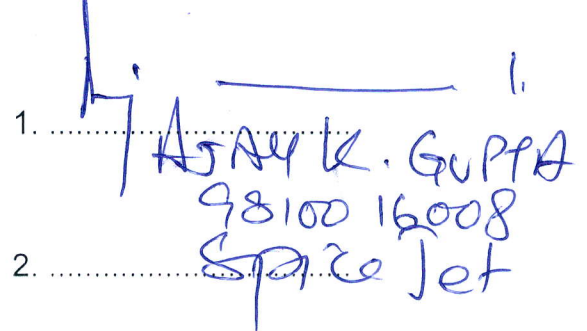 1.
1. ..............................
AJAY K. GUPTA
98100 16008
2. ..............................
Spice Jet